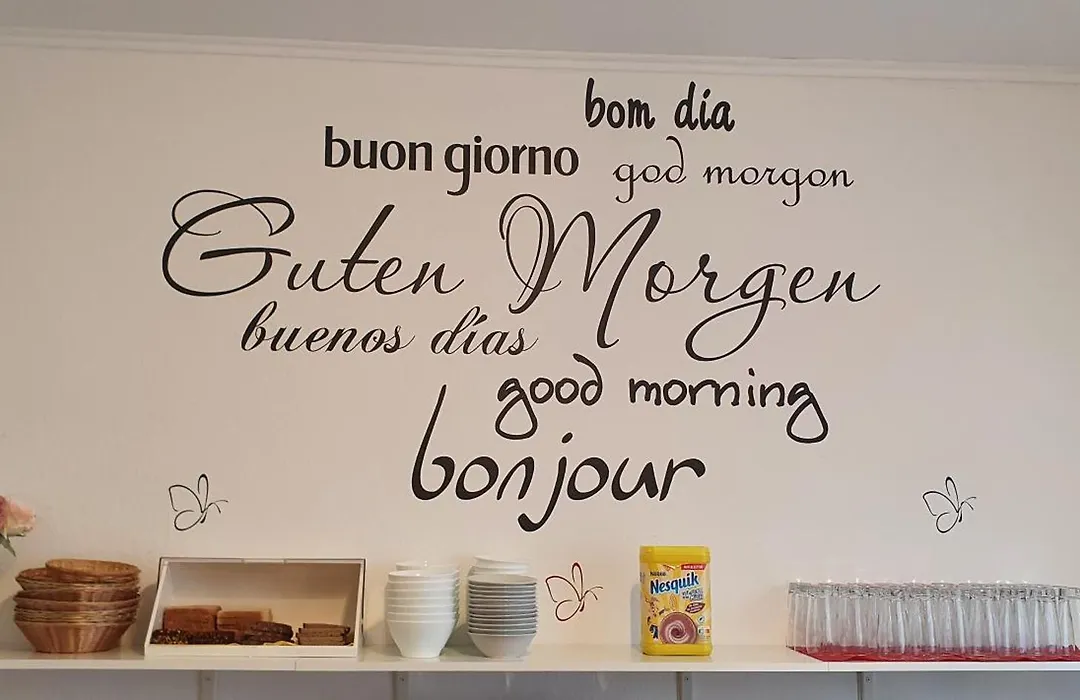 bom día
buon giorno
god morgon
Guten Morgen
buenos días
good morning
bonjour
Nestlé
Nesquik